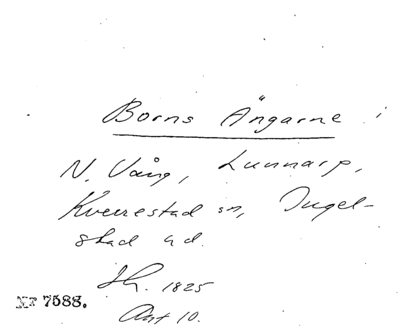 Borns Ängarne i
N. Vång, Lunnarp,
Kverrestad sn, Ingel-
stad hd.
Sk. 1825
Akt 10.
Nr 7588.